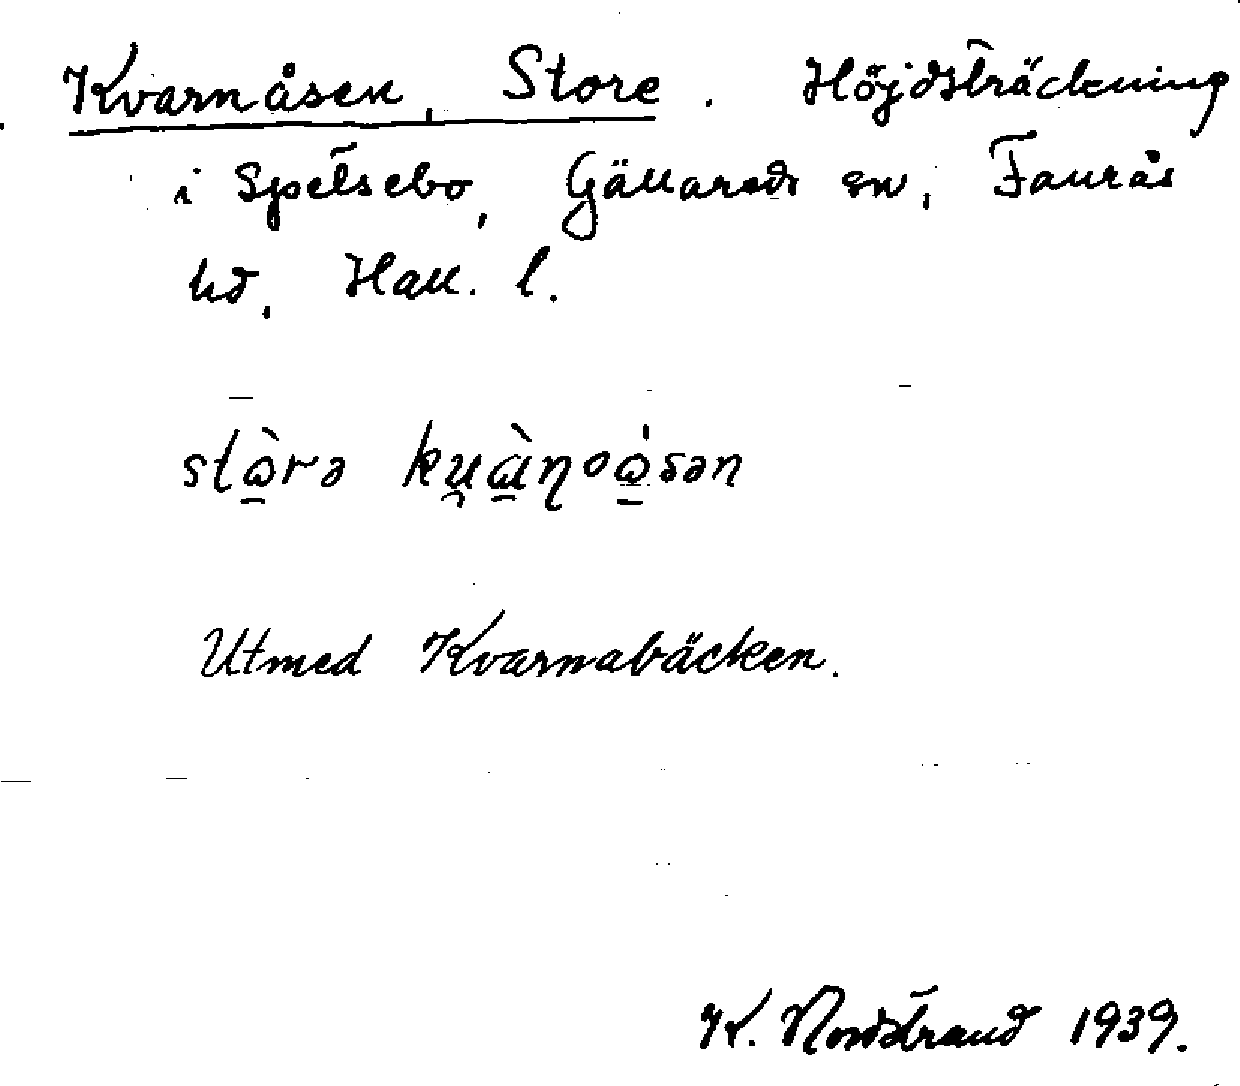 Kvarnåsen, Store. Höjdsträckning
i Spelsebo, Gällareds sn, Faurås
hd, Hall. l.
stὼ̲rə ku̯à̲ꞃoώ̲sən
Utmed Kvarnabäcken.
K. Nordstrand 1939.